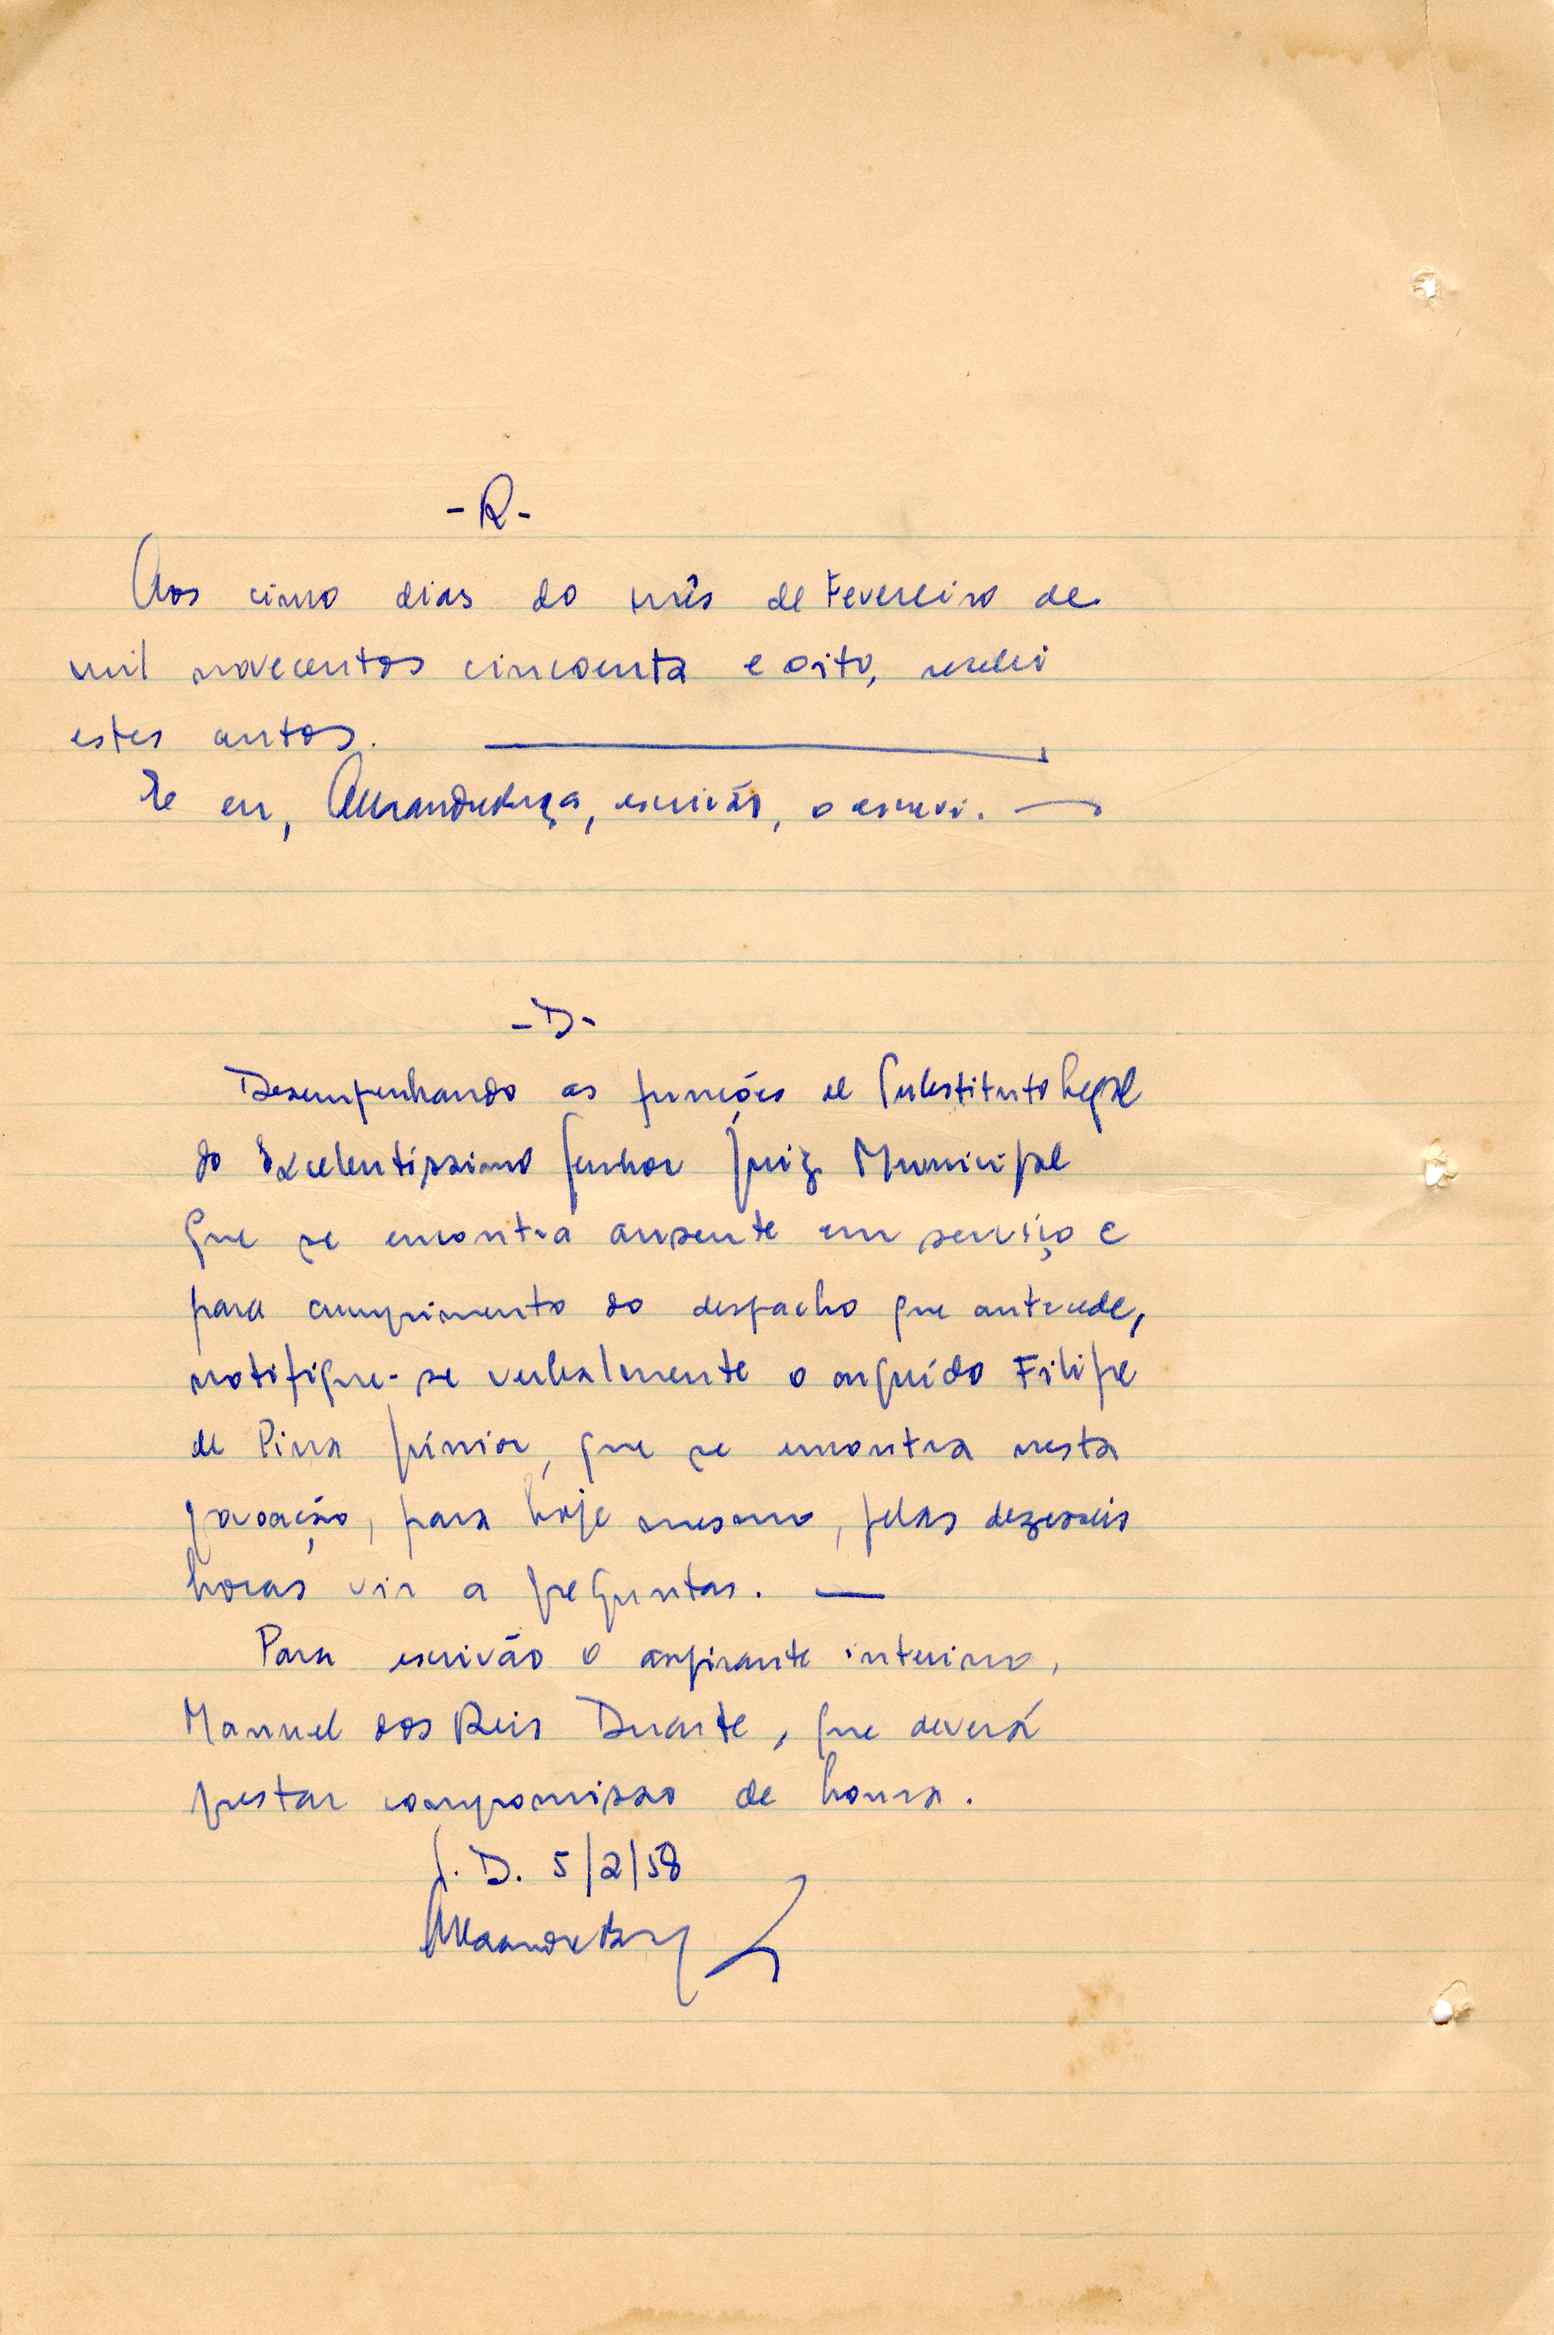 - R -
Aos cinco dias do mês de Fevereiro de
mil novecentos cincoenta e oito, recebi
estes autos.
E eu, escrivão, o escrevi.
- D -
Desempenhando as funções de Substituto Legal
do Excelentíssimo Senhor Juiz Municipal
que se encontra ausente em serviço e
para cumprimento do despacho que antecede,
notifique-se verbalmente o arguído Filipe
de Pina Júnior, que se encontra nesta
povoação, para hoje mesmo, pelas dezasseis
horas vir a preguntas.
Para escrivão o aspirante interino,
Manuel dos Reis Duarte, que deverá
prestar compromisso de honra.
S. D. 5/2/58